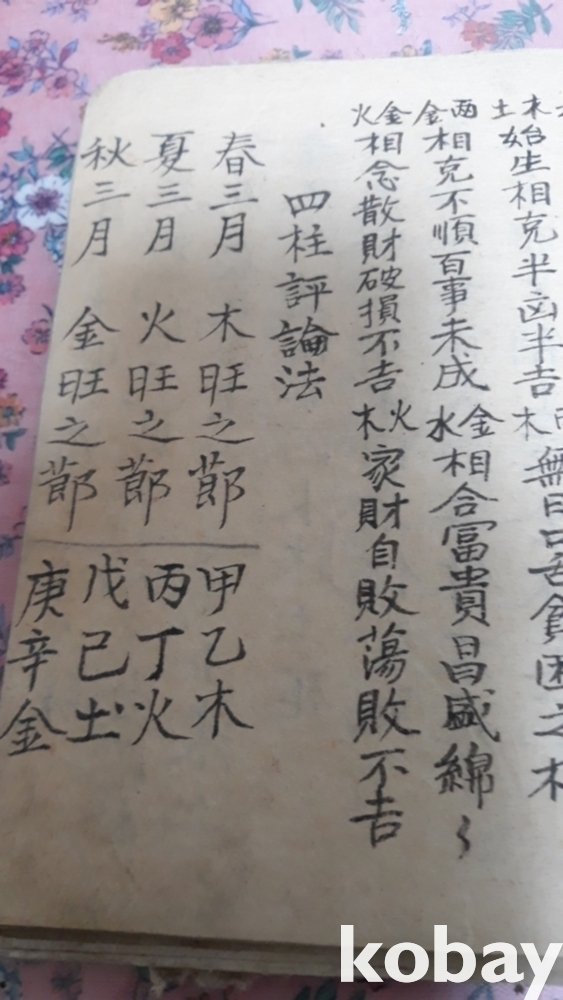 木土 始生相克半凶半吉
無日口舌貧困之木
兩金 相克不順百事未成
金水 相合冨貴昌盛綿〻
金火 相念散財破損不吉
火木 家財自敗蕩敗不吉
四柱評論法
春三月 木旺之節
夏三月 火旺之節
秋三月 金旺之節
甲乙木
丙丁火
戊己土
庚辛金
kobay